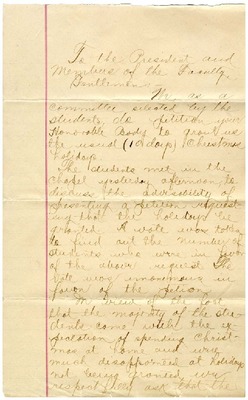 To the President and
Members of the Faculty,
Gentlemen:
We as a
committee selected by the
students do petition your
Honorable Body to grant us
the usual (10 days) Christmas
holidays.
The students met in the
chapel yesterday afternoon to
discuss the advisability of
presenting a petition request-
ing that the holidays be
granted. A vote was taken
to find out the number of
students who were in favor
of the above request. The
vote was unanimous in
favor of the petition.
In view of the fact
that the majority of the stu-
dents came with the ex-
pectation of spending Christ-
mas at home and are
much disappointed at holidays
not being granted we
respectfully ask that the